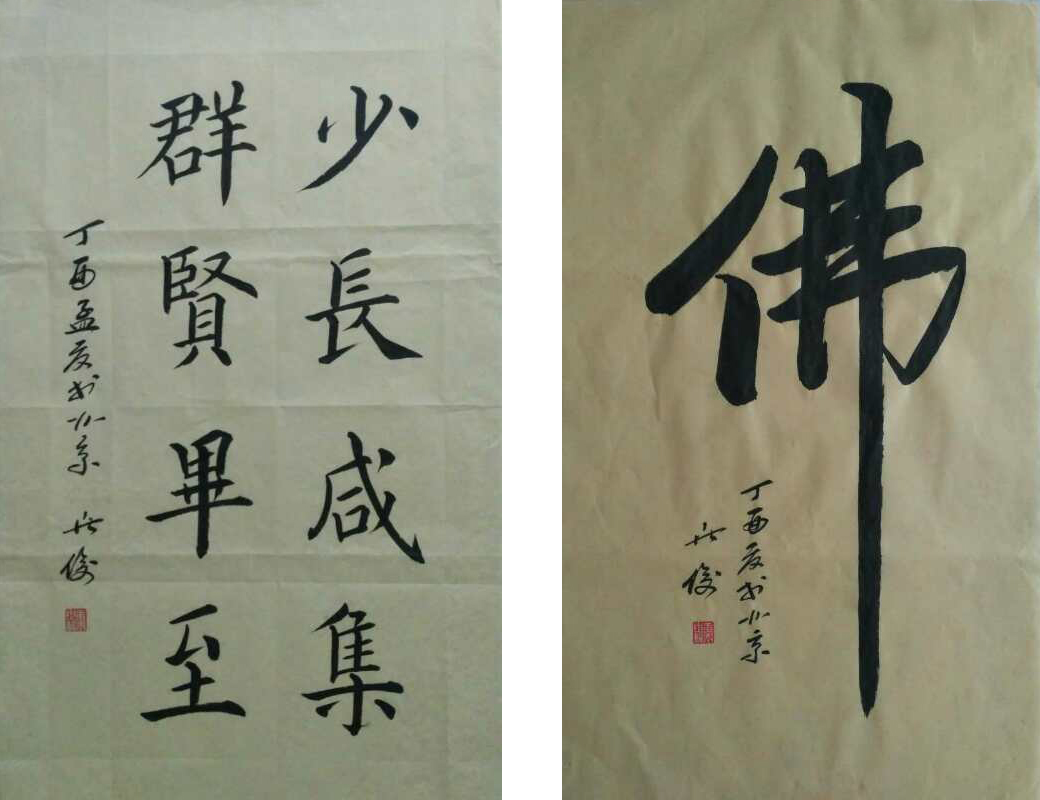 少長咸集
群賢畢至
丁酉孟夏於北京
俊
佛
丁酉夏於北京
俊